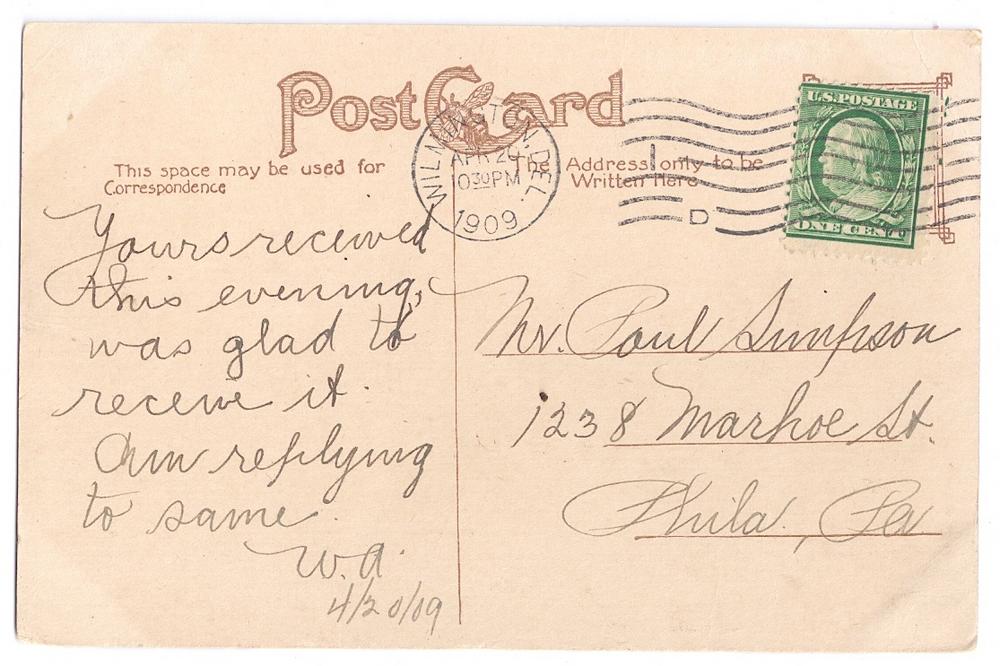 Post Card
This space may be used for
Correspondence
The Address only to be
Written Here
WILMINGTON, DEL.
APR 20
1030 PM
1909
D
U.S. POSTAGE
ONE CENT
Yours received
this evening,
was glad to
receive it.
Am replying
to same.
W.A.
4/20/09
Mr. Paul Simpson
1238 Markoe St.
Phila., Pa